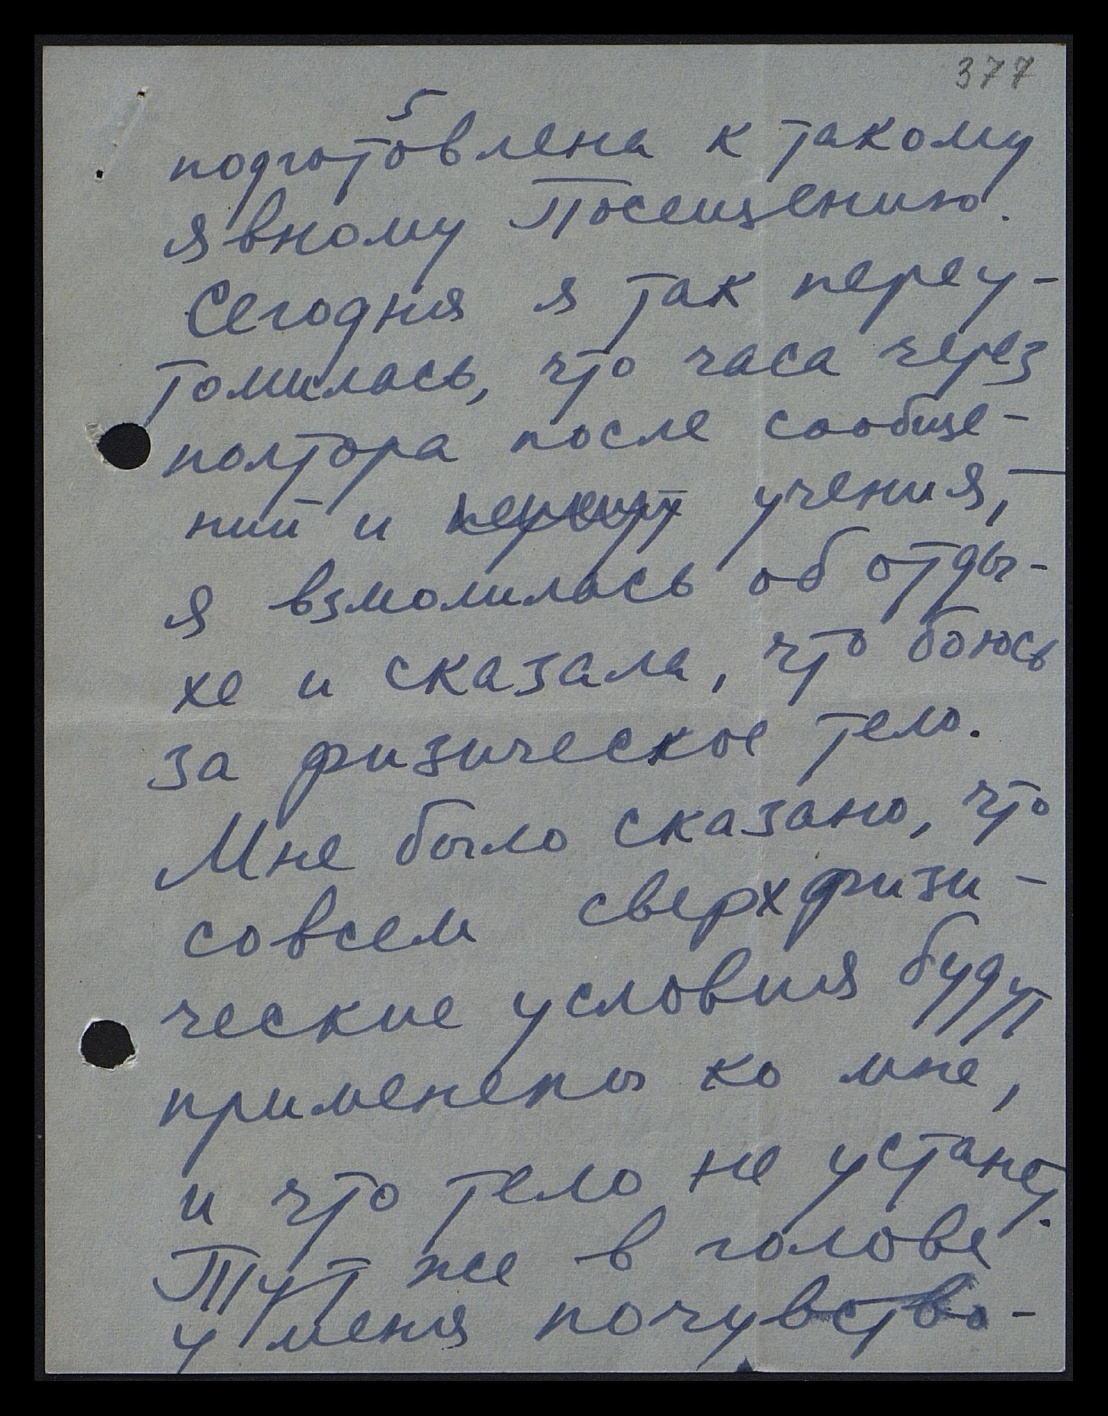 377
5
подготовлена к такому
явному Посещению.
Сегодня я так переу-
томилась, что часа через
полтора после сообще-
ний и учения, –
я взмолилась об отды-
хе и сказала, что боюсь
за физическое тело.
Мне было сказано, что
совсем сверхфизи-
ческие условия будут
применены ко мне,
и что тело не устанет.
Тут же в голове
у меня почувство-